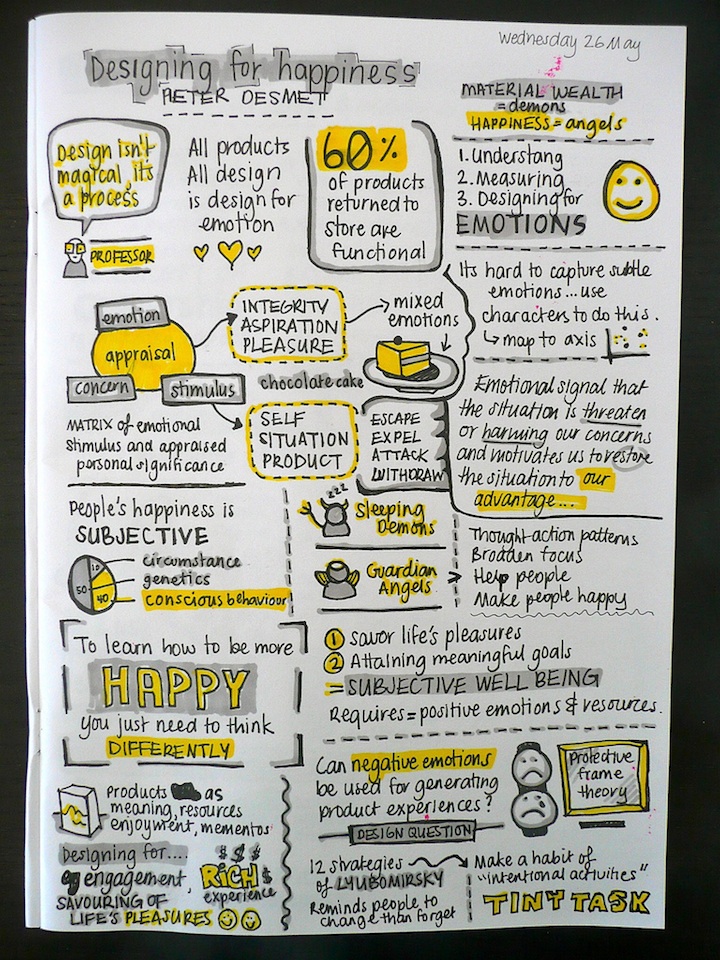 Wednesday 26 May
Designing for happiness
PIETER DESMET
MATERIAL WEALTH
= demons
HAPPINESS = angels
Design isn't
magical, its
a process
PROFESSOR
All products
All design
is design for
emotion
60%
of products
returned to
store are
functional
1. Understang
2. Measuring
3. Designing for
EMOTIONS
Its hard to capture subtle
emotions... use
characters to do this.
↳ map to axis
emotion
appraisal
concern
stimulus
INTEGRITY
ASPIRATION
PLEASURE
mixed
emotions
chocolate cake
MATRIX of emotional
Stimulus and appraised
personal significance
SELF
SITUATION
PRODUCT
ESCAPE
EXPEL
ATTACK
WITHDRAW
Emotional signal that
the situation is threaten
or harming our concerns
and motivates us to restore
the situation to our
advantage....
People's happiness is
SUBJECTIVE
10
50
40
circumstance
genetics
conscious behaviour
zzz
Sleeping
Demons
Guardian
Angels
Thought-action patterns
Broaden focus
Help people
Make people happy
To learn how to be more
HAPPY
you just need to think
DIFFERENTLY
1 savor life's pleasures
2 Attaining meaningful goals
= SUBJECTIVE WELL BEING
Requires = positive emotions & resources.
Can negative emotions
be used for generating
product experiences?
DESIGN QUESTION
Protective
frame
theory
Products as
meaning, resources
enjoyment, mementos
Designing for....
engagement,
$ $ $
RICH $
experience
SAVOURING OF
LIFE'S PLEASURES
12 strategies
of LYUBOMIRSKY
Reminds people to
change than forget
Make a habit of
"intentional activities"
TINY TASK